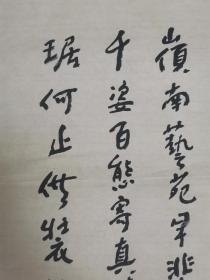 嶺南藝苑早非
千姿百態寄真
琚何止供壯